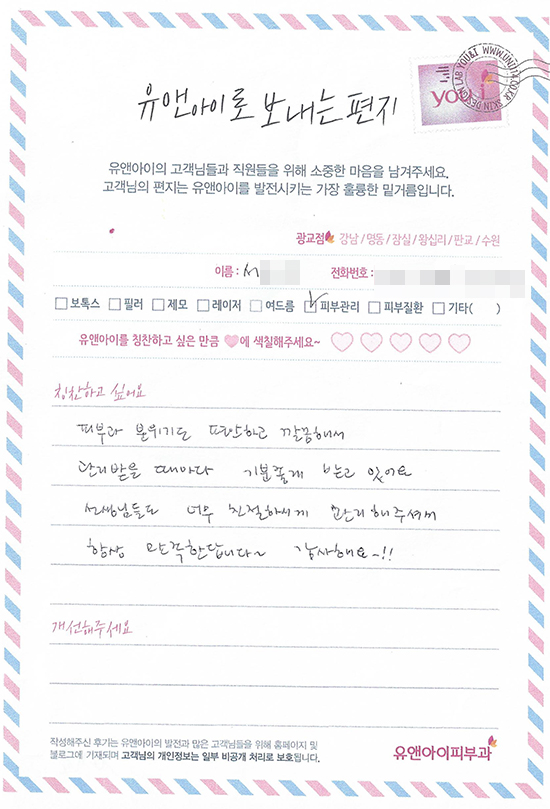 유앤아이로 보내는 편지
you&i
SKIN DESIGN LAB YOU&I WWW.UNI114.CO.KR
유앤아이의 고객님들과 직원들을 위해 소중한 마음을 남겨주세요.
고객님의 편지는 유앤아이를 발전시키는 가장 훌륭한 밑거름입니다.
광교점 강남/명동/잠실/왕십리/판교/수원
이름 : 서 전화번호 :
보톡스 필러 제모 레이저 여드름 피부관리 피부질환 기타( )
유앤아이를 칭찬하고 싶은 만큼 에 색칠해주세요~
칭찬하고 싶어요
피부과 분위기도 따뜻하고 깔끔해서
관리받을 때마다 기분좋게 받고 있어요
선생님들도 너무 친절하시게 관리해주셔서
항상 만족한답니다~ 감사해요~!!
개선해주세요
작성해주신 후기는 유앤아이의 발전과 많은 고객님들을 위해 홈페이지 및
블로그에 기재되며 고객님의 개인정보는 일부 비공개 처리로 보호됩니다.
유앤아이피부과